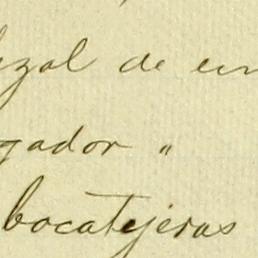 izal de un
gador "
bocatejeras